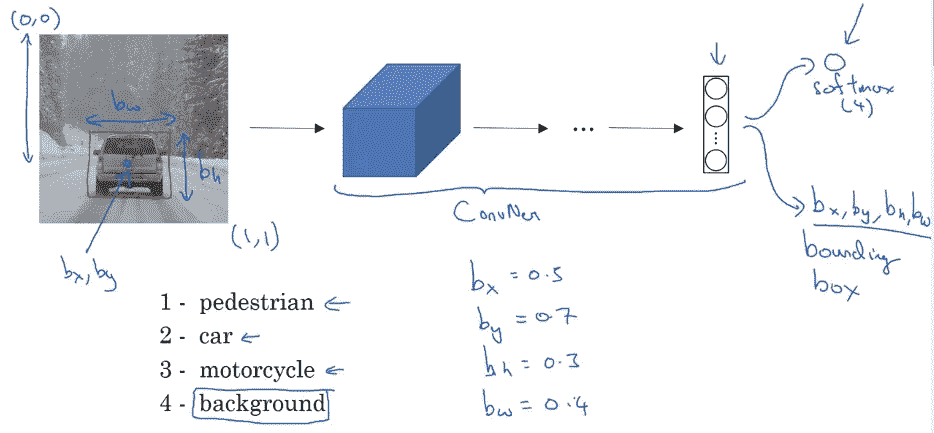 (0,0)
bw
bh
(1,1)
bx, by
ConvNet
softmax
(4)
bx, by, bh, bw
bounding
box
1 - pedestrian
2 - car
3 - motorcycle
4 - background
bx = 0.5
by = 0.7
bh = 0.3
bw = 0.4